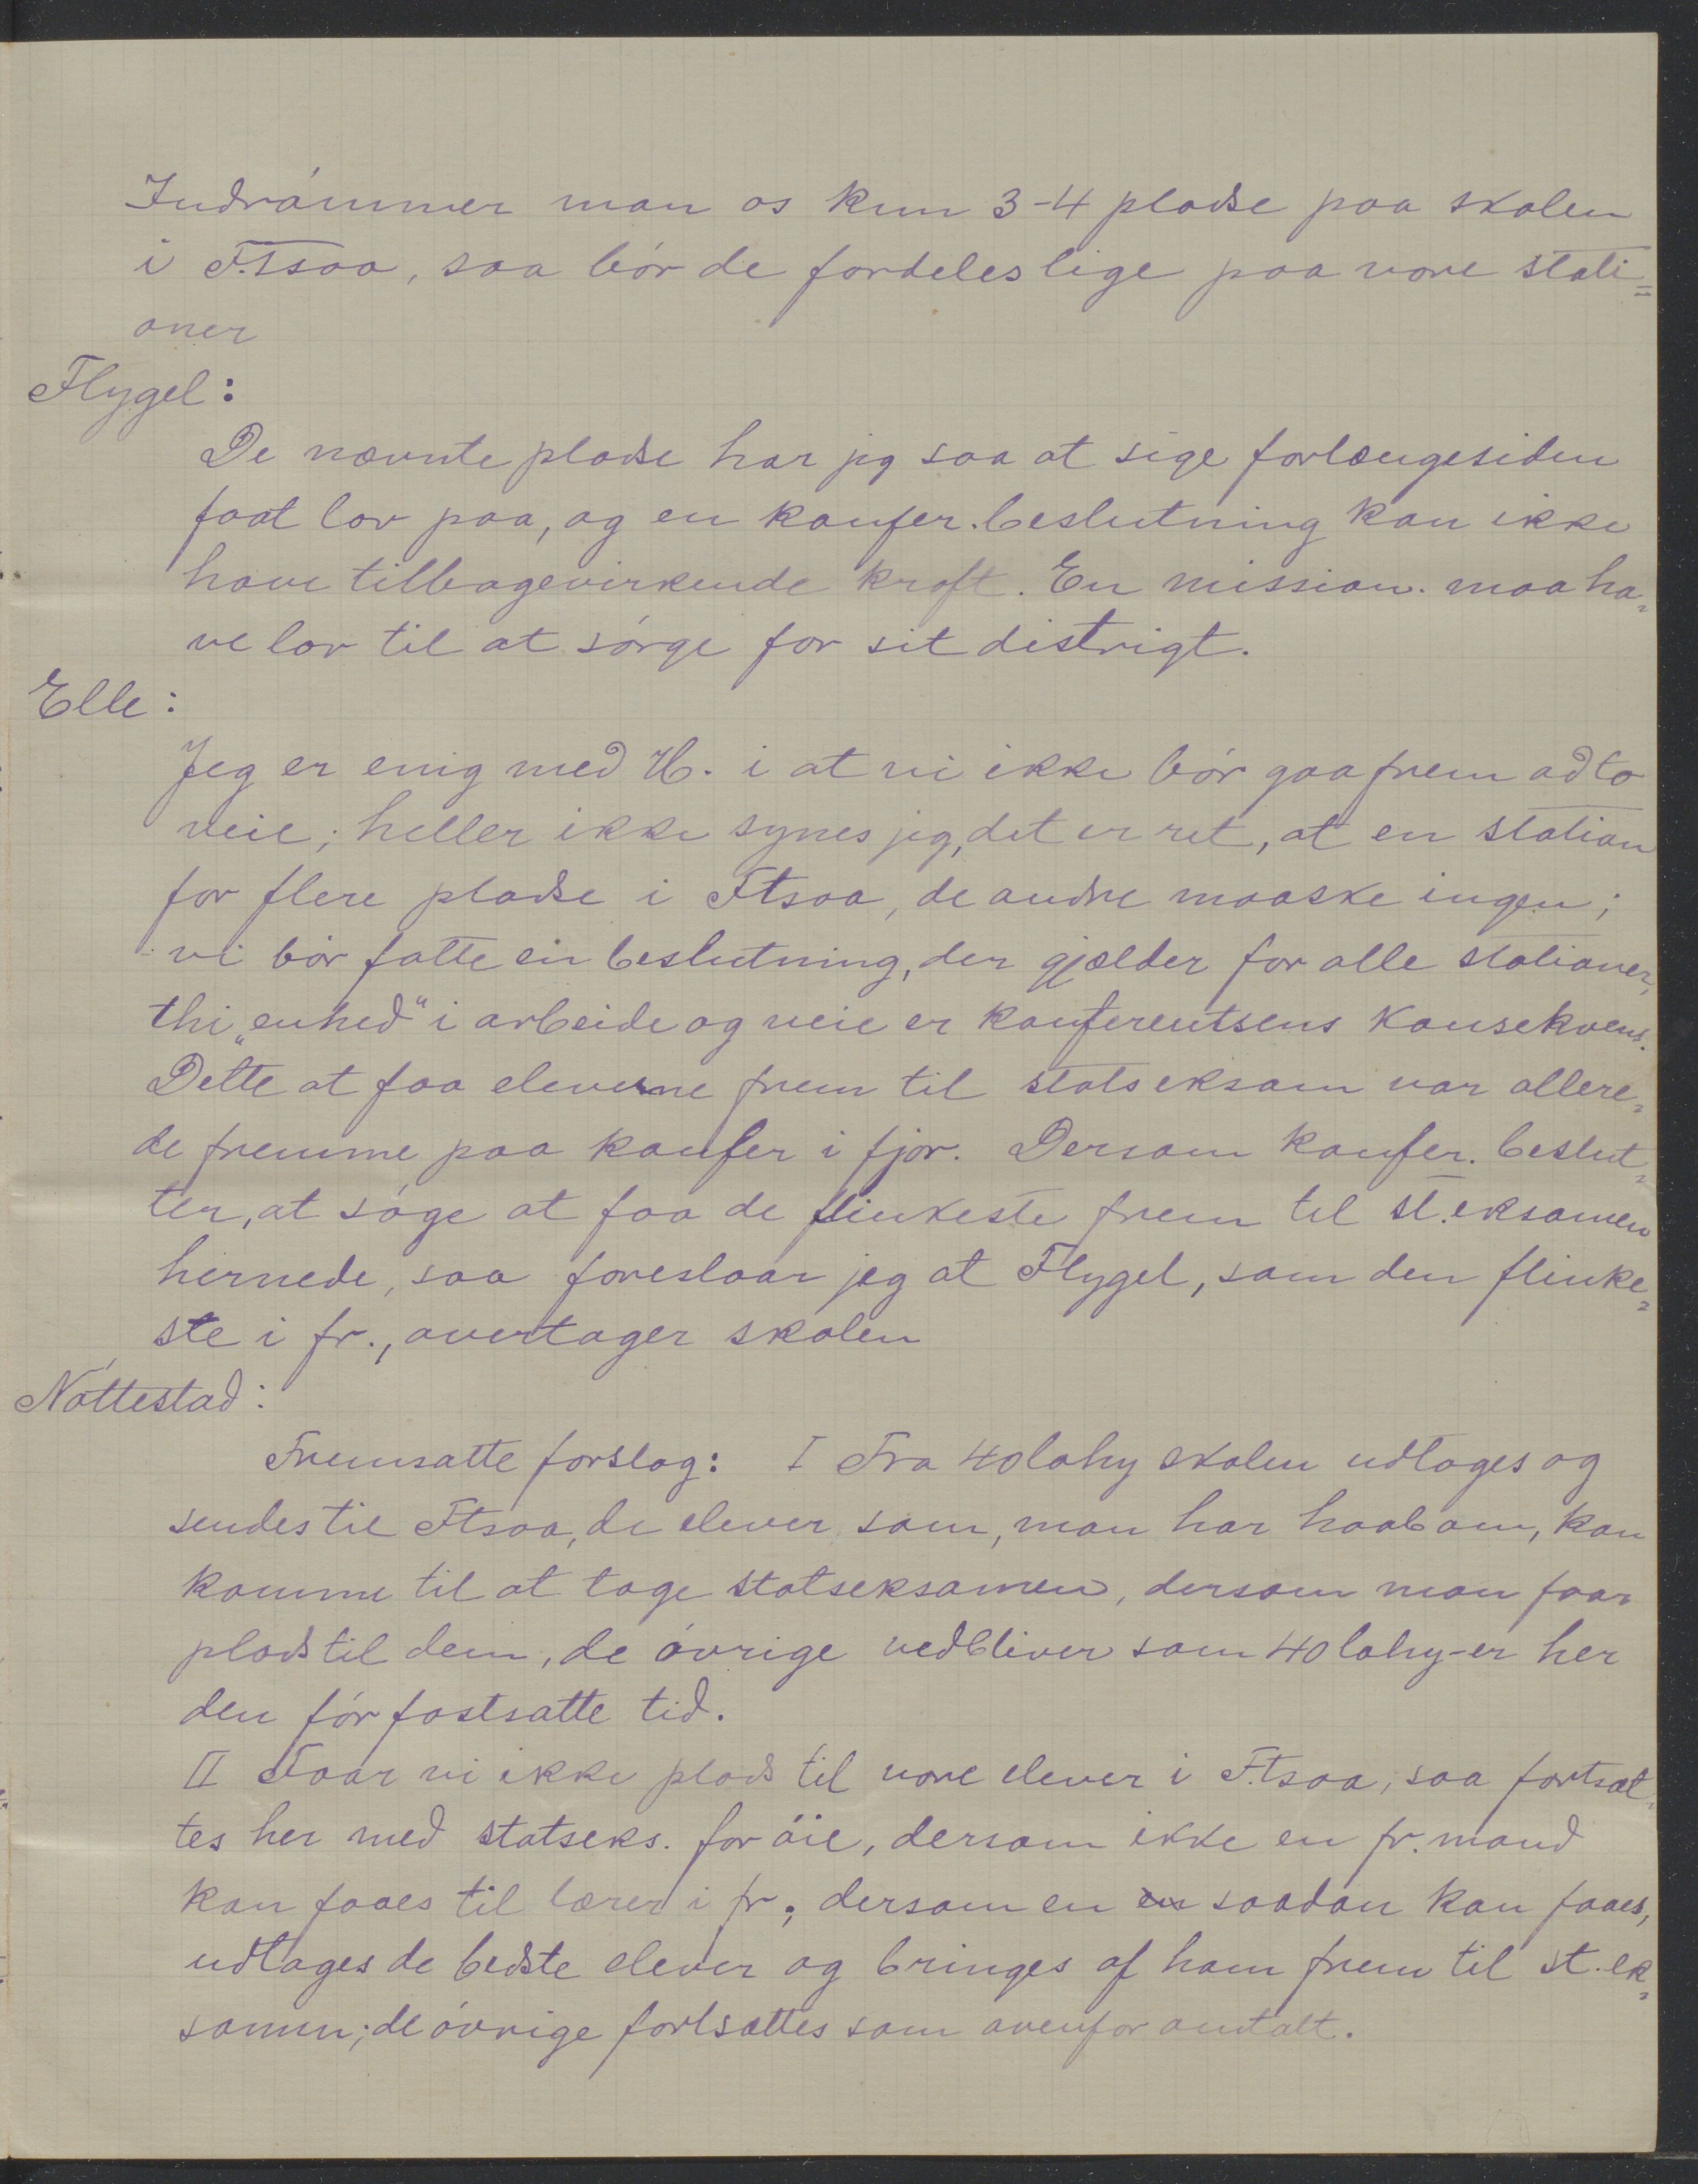 Indrømmer man os kun 3-4 pladse paa skolen
i F.tsoa, saa bør de fordeles lige paa vore stati=
oner
Flygel:
De nævnte pladse har jeg saa at sige forlængesiden
faat lov paa, og en konfer.beslutning kan ikke
have tilbagevirkende kraft. En mission. maa ha=
ve lov til at sørge for sit distrigt.
Elle:
Jeg er enig med H. i at vi ikke bør gaa frem ad to
veie; heller ikke synes jeg, det er ret, at en station
for flere pladse i Ftsoa, de andre maaske ingen;
vi bør fatte en beslutning, der gjælder for alle stationer,
thi „enhed“ i arbeide og veie er konferentsens konsekvens.
Dette at faa eleverne frem til statseksam var allere=
de fremme paa konfer i fjor. Dersom konfer. beslut=
ter, at søge at faa de flinkeste frem til st.eksamen
hernede, saa foreslaar jeg at Flygel, som den flinke=
ste i fr., overtager skolen
Nøttestad:
Fremsatte forslag: I Fra 40lahy skolen udtages og
sendes til Ftsoa, de elever som, man har haab om, kan
komme til at tage statseksamen, dersom man faar
plads til dem, de øvrige vedbliver som 40 lahy-er her
den før fastsatte tid.
II Faar vi ikke plads til vore elever i F.tsoa, saa fortsæt=
tes her med statseks. for øie, dersom ikke en fr. mand
kan faaes til lærer i fr; dersom en en saadan kan faaes,
udtages de bedste elever og bringes af ham frem til st. ek=
samen; de øvrige fortsættes som ovenfor omtalt.